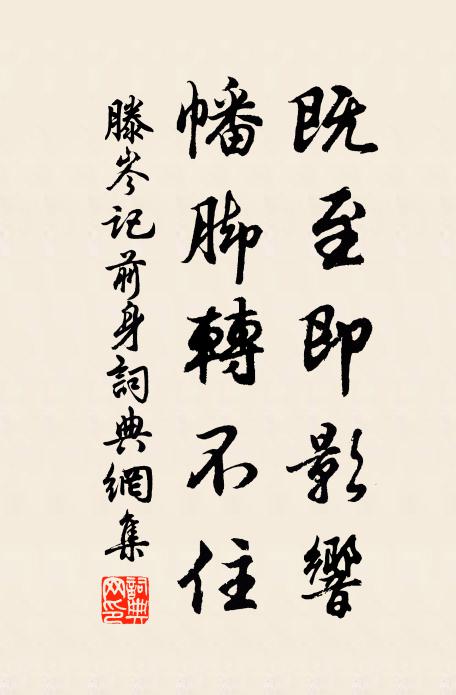 既至即影響
幡脚轉不住
滕岑記前身詞典網集